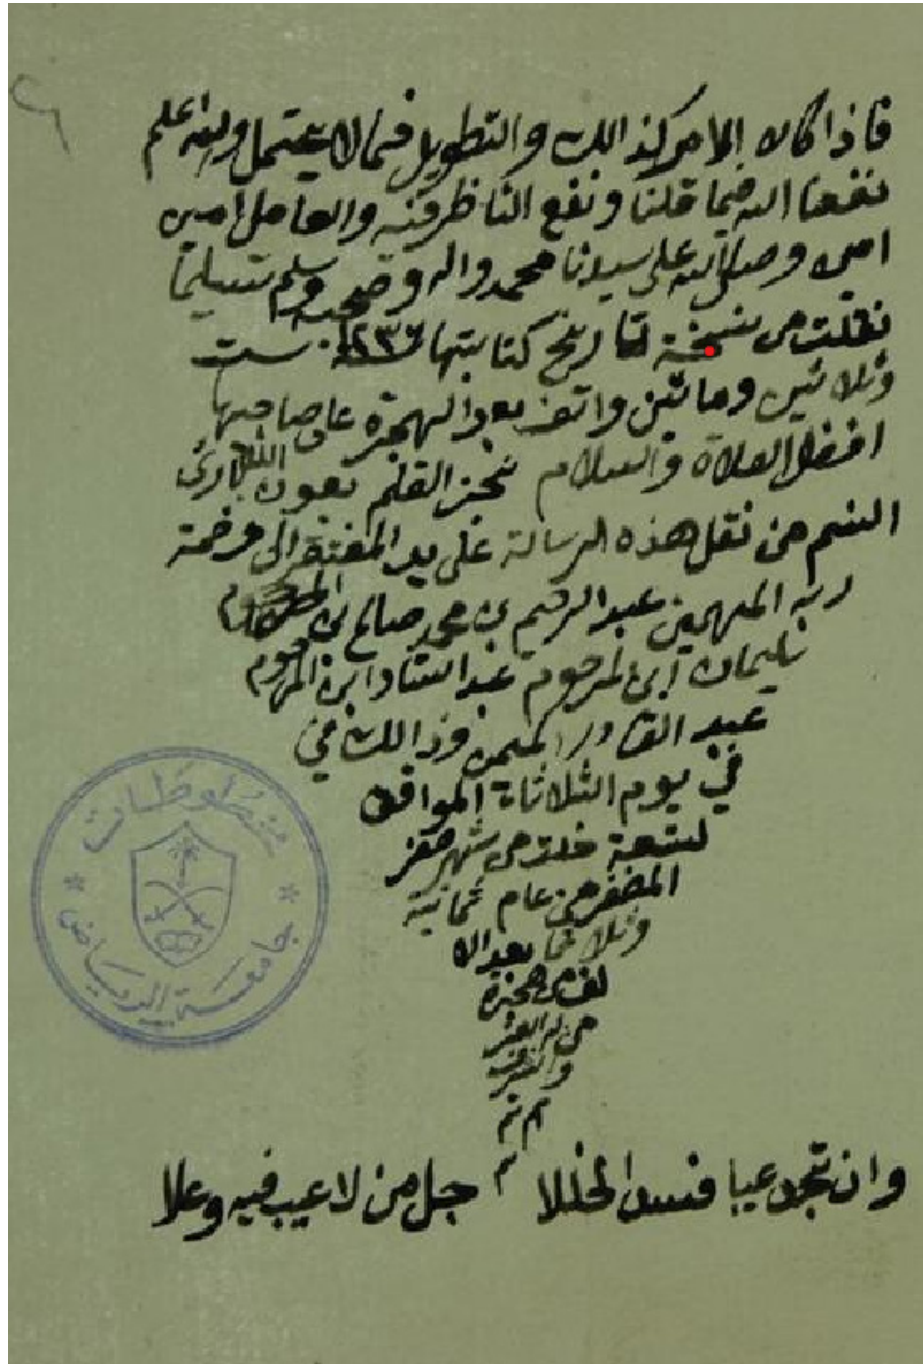 فاذا كان الامر كذالك والتطويل فمالا يحتمل والله اعلم
نفعنا الله فيما قلنا ونفع الناظر فيه والعامل امين
امين وصلى الله على سيدنا محمد واله وصحبه وسلم تسليما
نقلت من نسخة تاريخ كتابتها ١٢٣٦ ست
وثلاثين وماتين والف بعد الهجرة على صاحبها
افضل الصلاة والسلام نجز القلم بعون الله الباري
النسم من نقل هذه الرسالة على يد المفتقر الى رحمة
ربه المهيمن عبد الرحيم بن محمد صالح بن المرحوم
سليمان ابن المرحوم عبد الستار ابن المرحوم
عبد القادر وذالك في
في يوم الثلاثاء الموافق
لتسعة خلت من شهر صفر
المضفر من عام ثمانية
وثلاثما بعد الا
لف من هجرة
من له العز
والشرف
تم
م
وان تجد عيبا فسد الخللا جل من لا عيب فيه وعلا
مخطوطات
جامعة الرياض